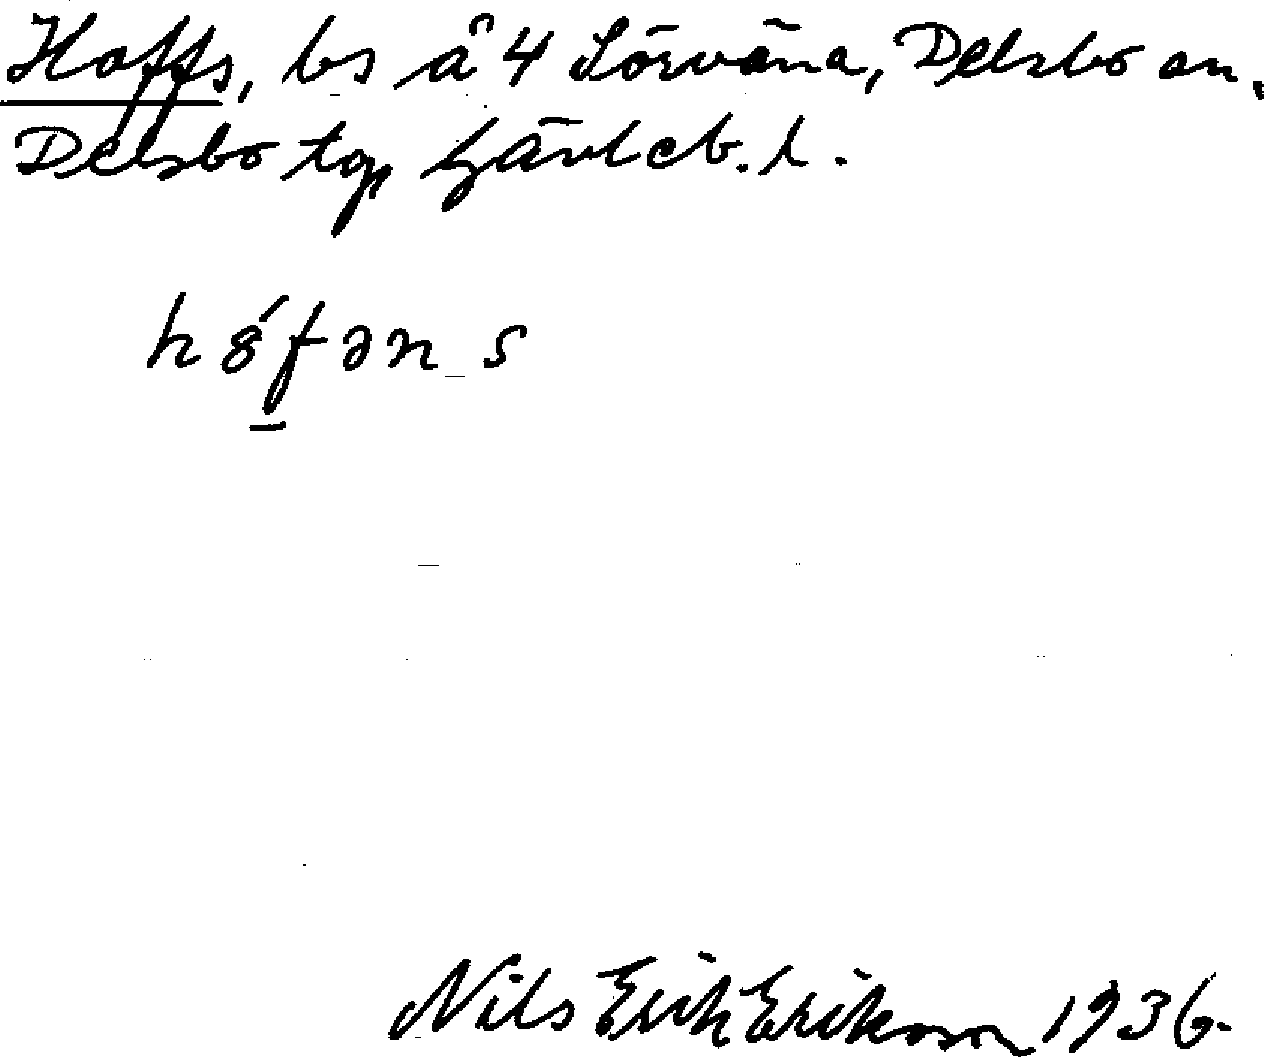 Hoffs, bs å 4 Sörväna, Delsbo sn,
Delsbo tg, Gävleb. l.
h8́fəns
Nils Erik Erikson 1936.